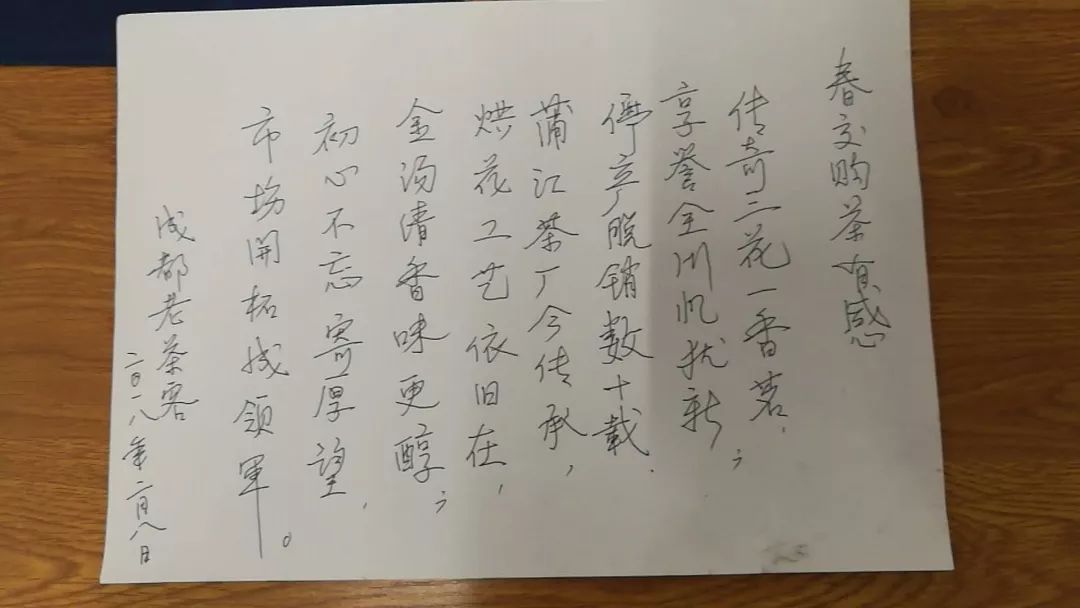 春交购茶有感
传奇三花一香茗，
享誉全川忆犹新；
停产脱销数十载，
蒲江茶厂今传承，
烘花工艺依旧在，
金汤清香味更醇；
初心不忘寄厚望，
市场開拓成领军。
成都老茶客
二〇一八年二月八日